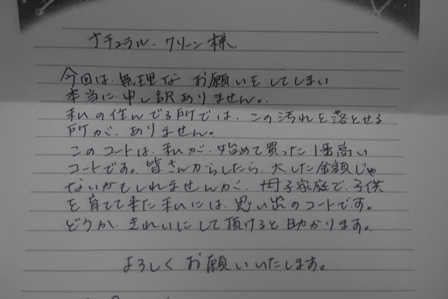 ナチュラル.クリーン様
今回は、無理な お願いをしてしまい
本当に申し訳ありません。
私の住んでる所では、この汚れを落とせる
所が、ありません。
このコートは、私が、始めて買った1番高い
コートです。皆さんからしたら、大した金額じゃ
ないかもしれませんが、母子家庭で、子供
を育てて来た私には、思い出のコートです。
どうか、きれいにして頂けると助かります。
よろしく お願いいたします。